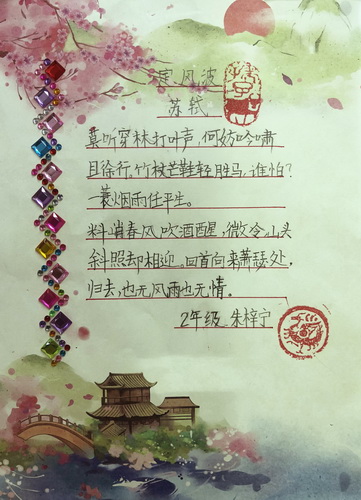 定风波
苏轼
莫听穿林打叶声,何妨吟啸
且徐行。竹杖芒鞋轻胜马,谁怕?
一蓑烟雨任平生。
料峭春风吹酒醒,微冷,山头
斜照却相迎。回首向来萧瑟处,
归去,也无风雨也无情。
2年级 朱梓宁